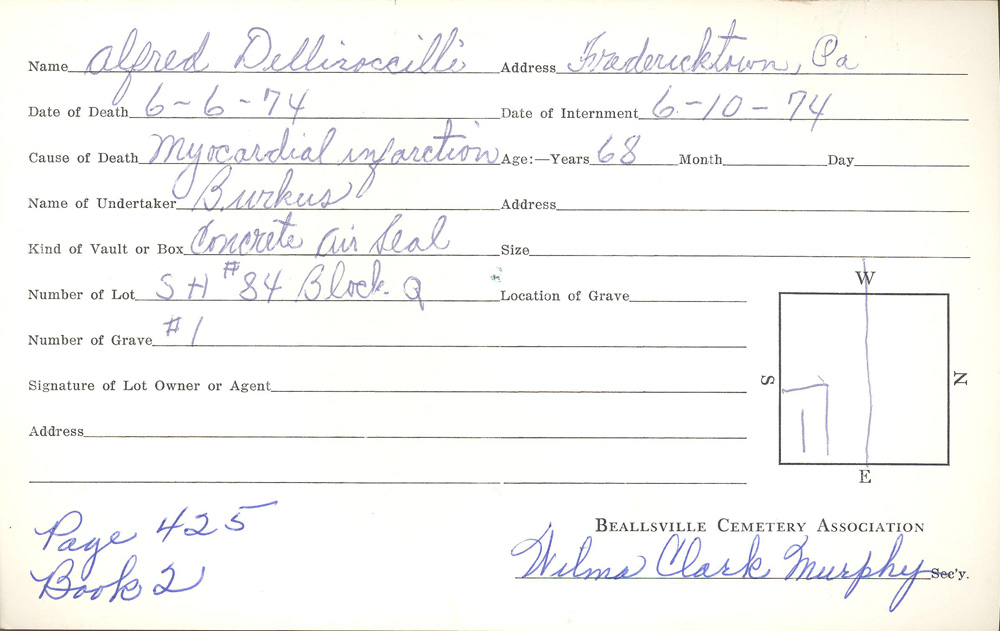 Name Alfred Delliroccilli Address Fredericktown, Pa
Date of Death 6-6-74 Date of Internment 6-10-74
Cause of Death Myocardial infarction Age:—Years 68 Month Day
Name of Undertaker Burkus Address
Kind of Vault or Box Concrete Air Seal Size
Number of Lot SH #84 Block Q Location of Grave
Number of Grave #1
Signature of Lot Owner or Agent
Address
W
S N
1
E
Page 425
Book 2
BEALLSVILLE CEMETERY ASSOCIATION
Wilma Clark Murphy Sec'y.